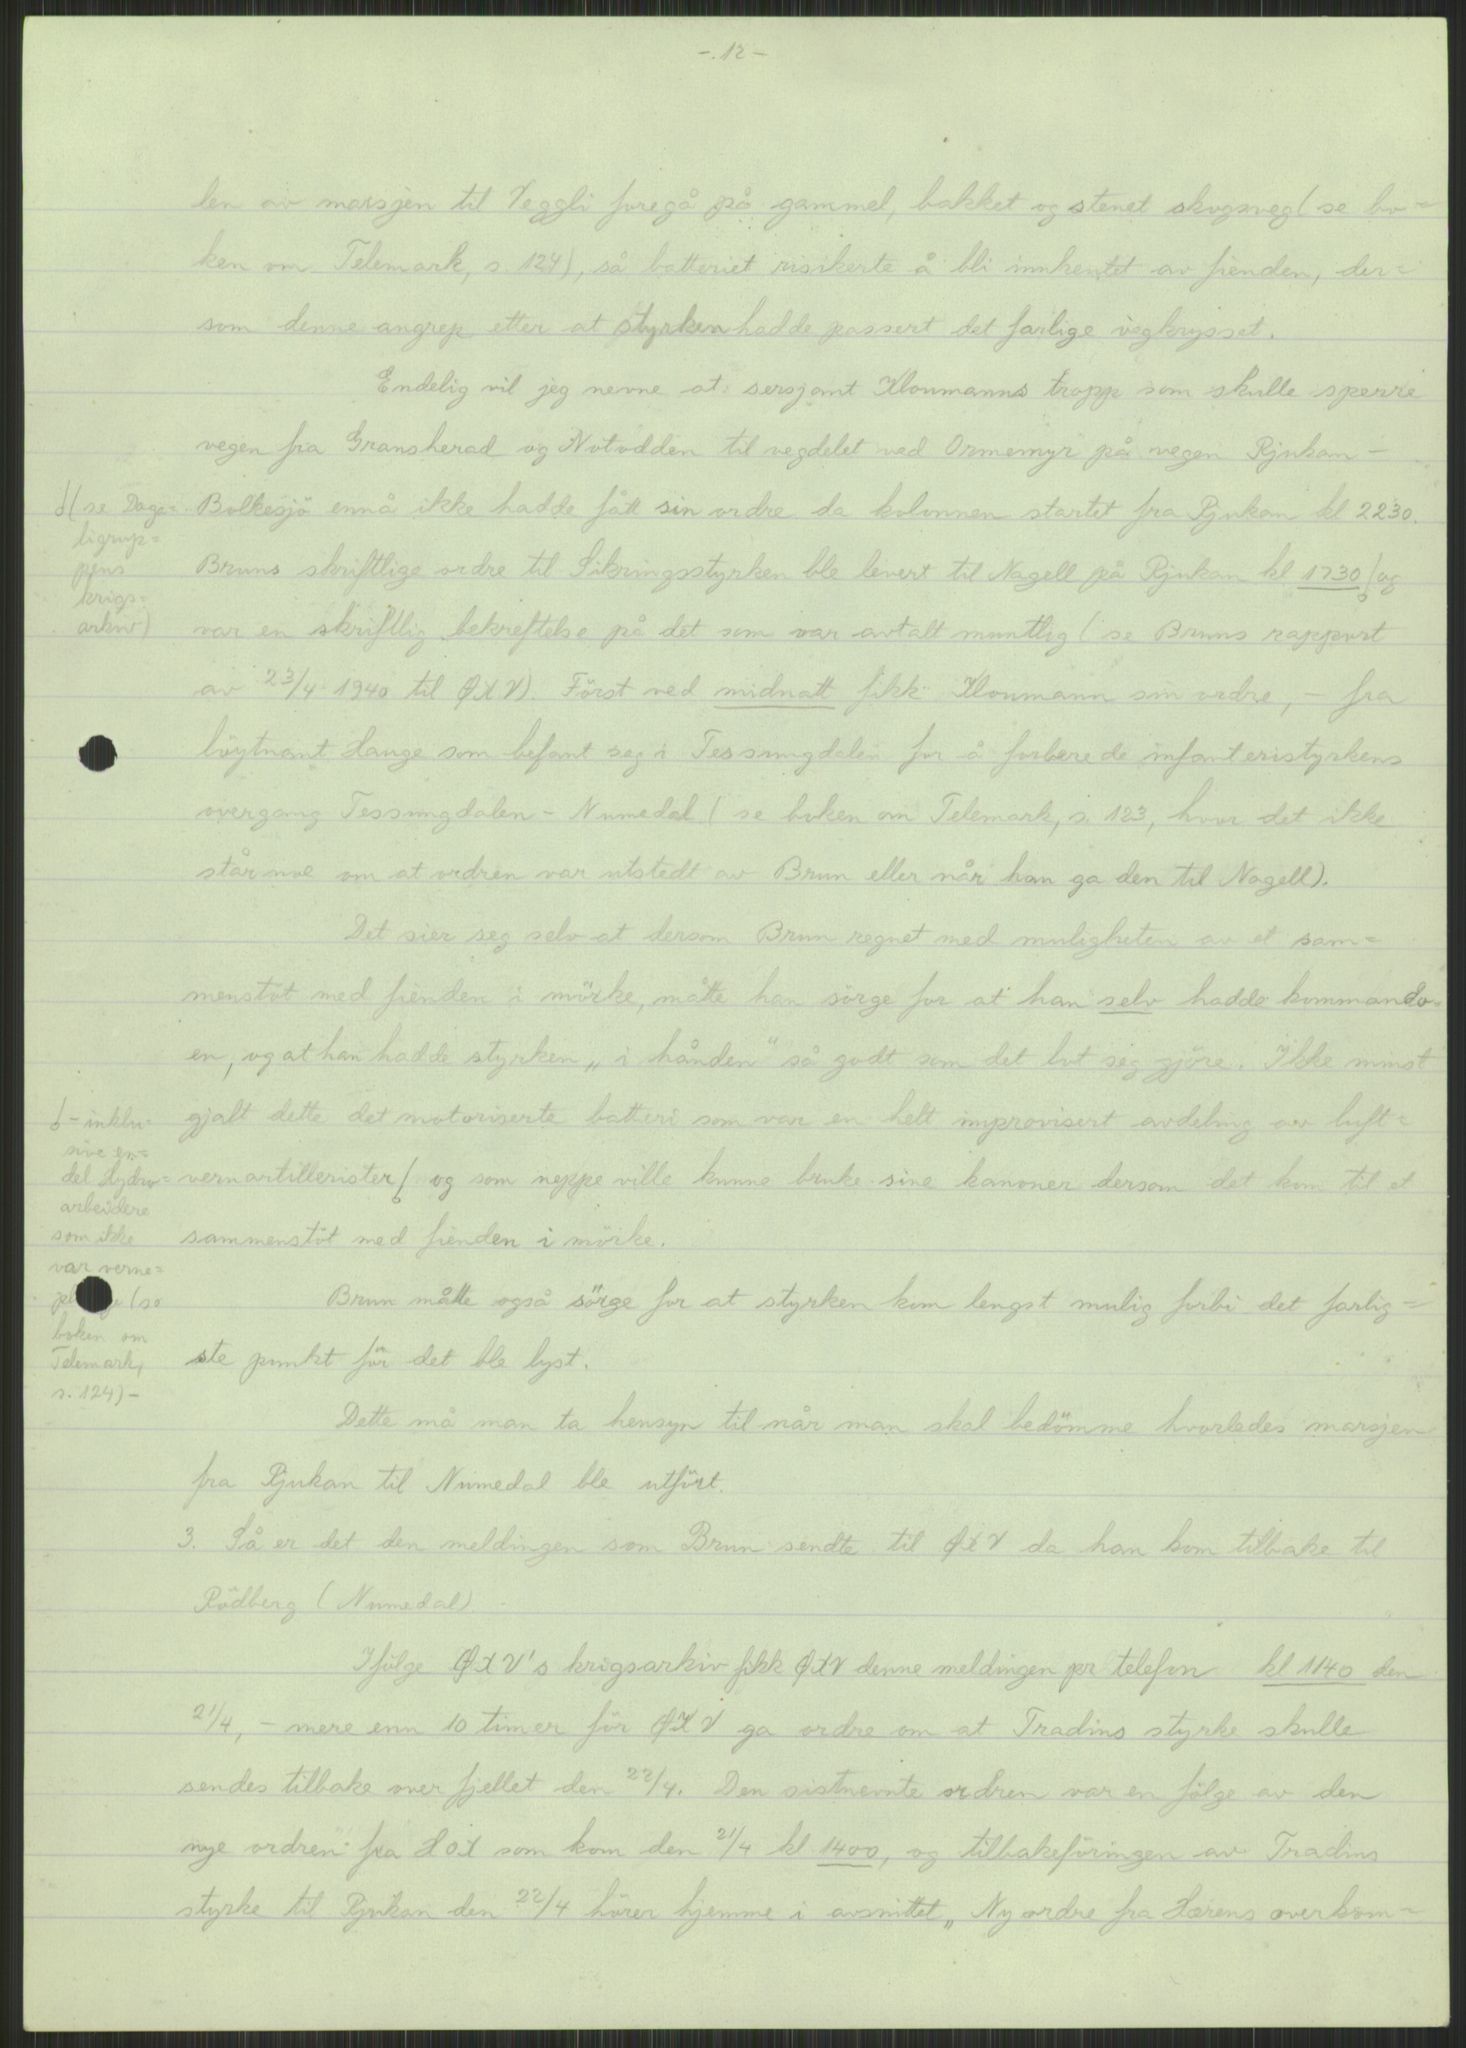 -. 12 -
len av marsjen til Veggli foregå på gammel, bakket og stenet skogsveg (se bo=
ken om Telemark, s. 124), så batteriet risikerte å bli innhentet av fienden, der=
som denne angrep etter at styrken hadde passert det farlige vegkrysset.
Endelig vil jeg nevne at sersjant Kloumanns tropp som skulle sperre
vegen fra Gransherad og Notodden til vegdelet ved Ormemyr på vegen Rjukan -
Bolkesjö ennå ikke hadde fått sin ordre da kolonnen startet fra Rjukan kl 2230.
Bruns skriftlige ordre til Sikringsstyrken ble levert til Nagell på Rjukan kl 1730 og
var en skriftlig bekreftelse på det som var avtalt muntlig (se Bruns rapport
av 23/4 1940 til ØKV). Först ved midnatt fikk Kloumann sin ordre, - fra
löytnant Hauge som befant seg i Tessungdalen for å forberede infanteristyrkens
overgang Tessungdalen - Numedal (se boken om Telemark, s. 123, hvor det ikke
står noe om at ordren var utstedt av Brun eller når han ga den til Nagell).
Det sier seg selv at dersom Brun regnet med muligheten av et sam=
menstöt med fienden i mörke, måtte han sörge for at han selv hadde kommando=
en, og at han hadde styrken „i hånden" så godt som det lot seg gjöre. Ikke minst
gjalt dette det motoriserte batteri som var en helt improvisert avdeling av luft=
vernartillerister og som neppe ville kunne bruke sine kanoner dersom det kom til et
sammenstöt med fienden i mörke.
Brun måtte også sörge for at styrken kom lengst mulig forbi det farlig=
ste punkt för det ble lyst.
Dette må man ta hensyn til når man skal bedömme hvorledes marsjen
fra Rjukan til Numedal ble utfört.
3. Så er det den meldingen som Brun sendte til ØKV da han kom tilbake til
Rödberg (Numedal)
Ifölge ØKV's krigsarkiv fikk ØKV denne meldingen pr telefon kl 1140 den
21/4, - mere enn 10 timer för ØKV ga ordre om at Tradins styrke skulle
sendes tilbake over fjellet den 22/4. Den sistnevnte ordren var en fölge av den
nye ordren fra HOK som kom den 21/4 kl 1400, og tilbakeföringen av Tradins
styrke til Rjukan den 22/4 hörer hjemme i avsnittet „Ny ordre fra Hærens overkom=
(se Daga=
ligrup=
pens
krigs=
arkiv)
- inklu=
sive en=
del Hydro=
arbeidere
som ikke
var verne=
(se
boken om
Telemark,
s. 124) -